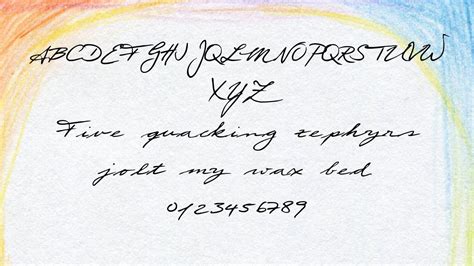 ABCDEFGHIJKLMNOPQRSTUVW
XYZ
Five quacking zephyrs
jolt my wax bed
0123456789